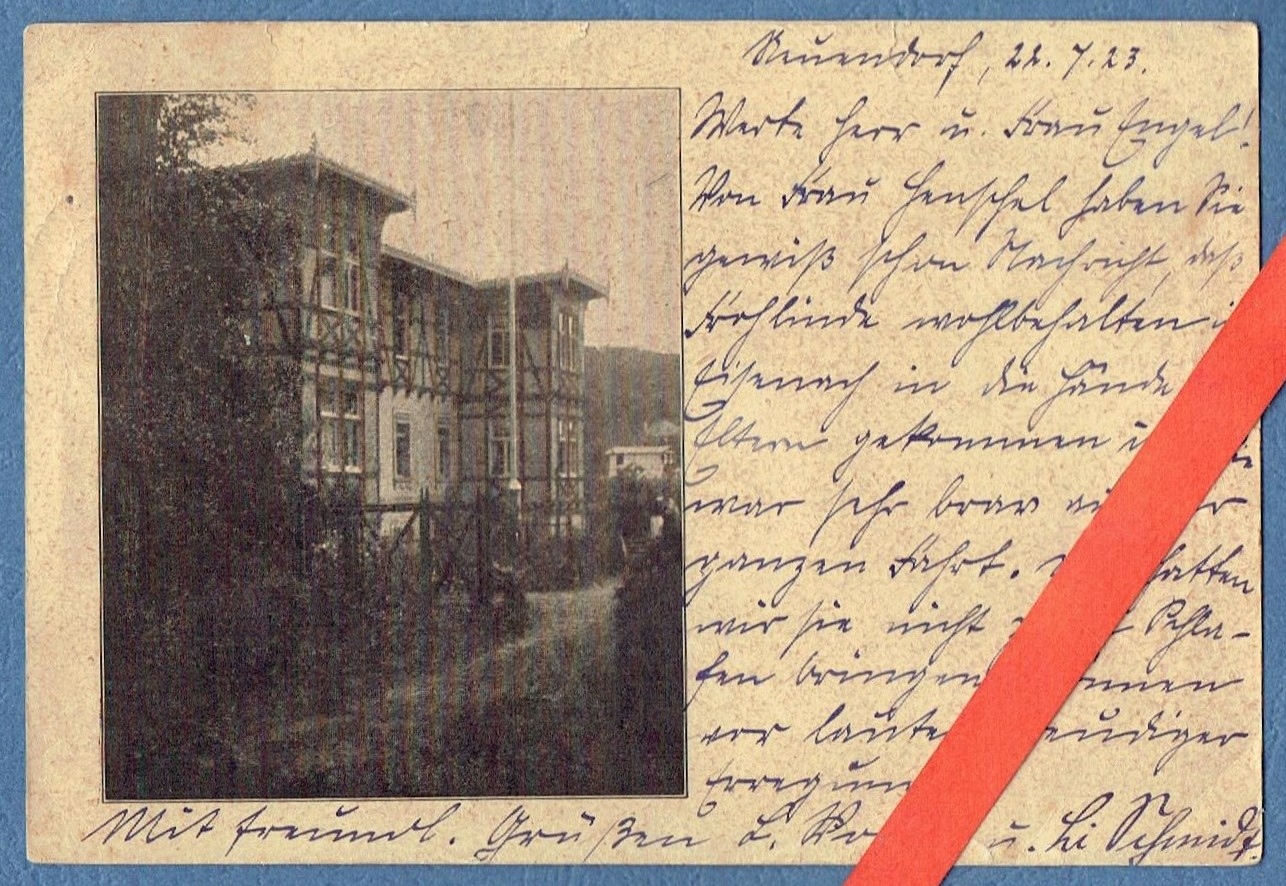 Neuendorf, 22.7.23.
Werte Herr u. Frau Engel!
Von Frau Henschel haben Sie
gewiß schon Nachricht, daß
Frohlinde wohlbehalten
Eisenach in die Hände
Eltern gekommen
war sehr brav
ganzen Fahrt. hatten
wir sie nicht Schla-
fen bringen
vor
Erregung
Mit freundl. Grüßen u. Li Schmidt.